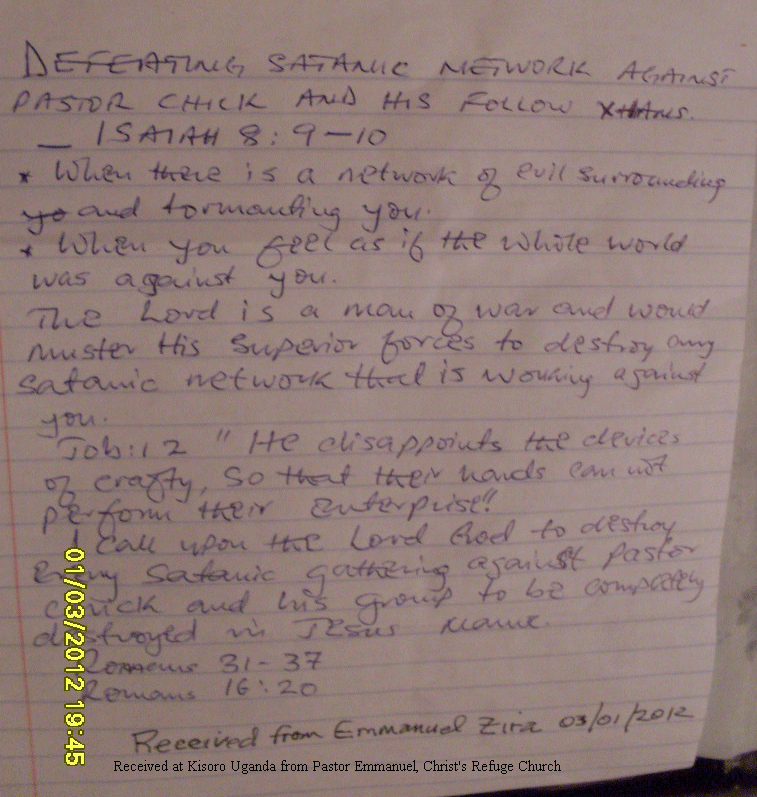 DEFEATING SATANIC NETWORK AGAINST
PASTOR CHICK AND HIS FOLLOW Xtians.
— ISAIAH 8:9-10
* When there is a network of evil surrounding
yo and tormanting you.
* When you feel as if the whole world
was against you.
The Lord is a man of war and would
muster His Superior forces to destroy any
satanic network that is working against
you.
Job:12 "He disappoints the devices
of crafty, so that their hands can not
perform their Enterprise"
I call upon the Lord God to destroy
Every Satanic gathering against Pastor
chick and his group to be completely
destroyed in Jesus name.
Romans 31-37
Romans 16:20
01/03/2012 19:45
Received from Emmanuel Zira 03/01/2012
Received at Kisoro Uganda from Pastor Emmanuel, Christ's Refuge Church